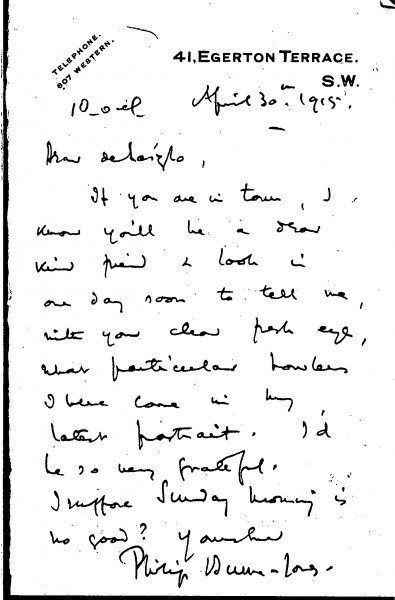 TELEPHONE.
807 WESTERN.
41, EGERTON TERRACE.
S.W.
April 30th. 1915.
Dear deLaszlo,
If you are in town, I
know you'll be a dear
kind friend & look in
one day soon to tell me,
with your clear fresh eye,
what particular howlers
I have done in my
latest portrait. I'd
be so very grateful.
I suppose Sunday morning is
no good? Yours ever
Philip Burne-Jones.